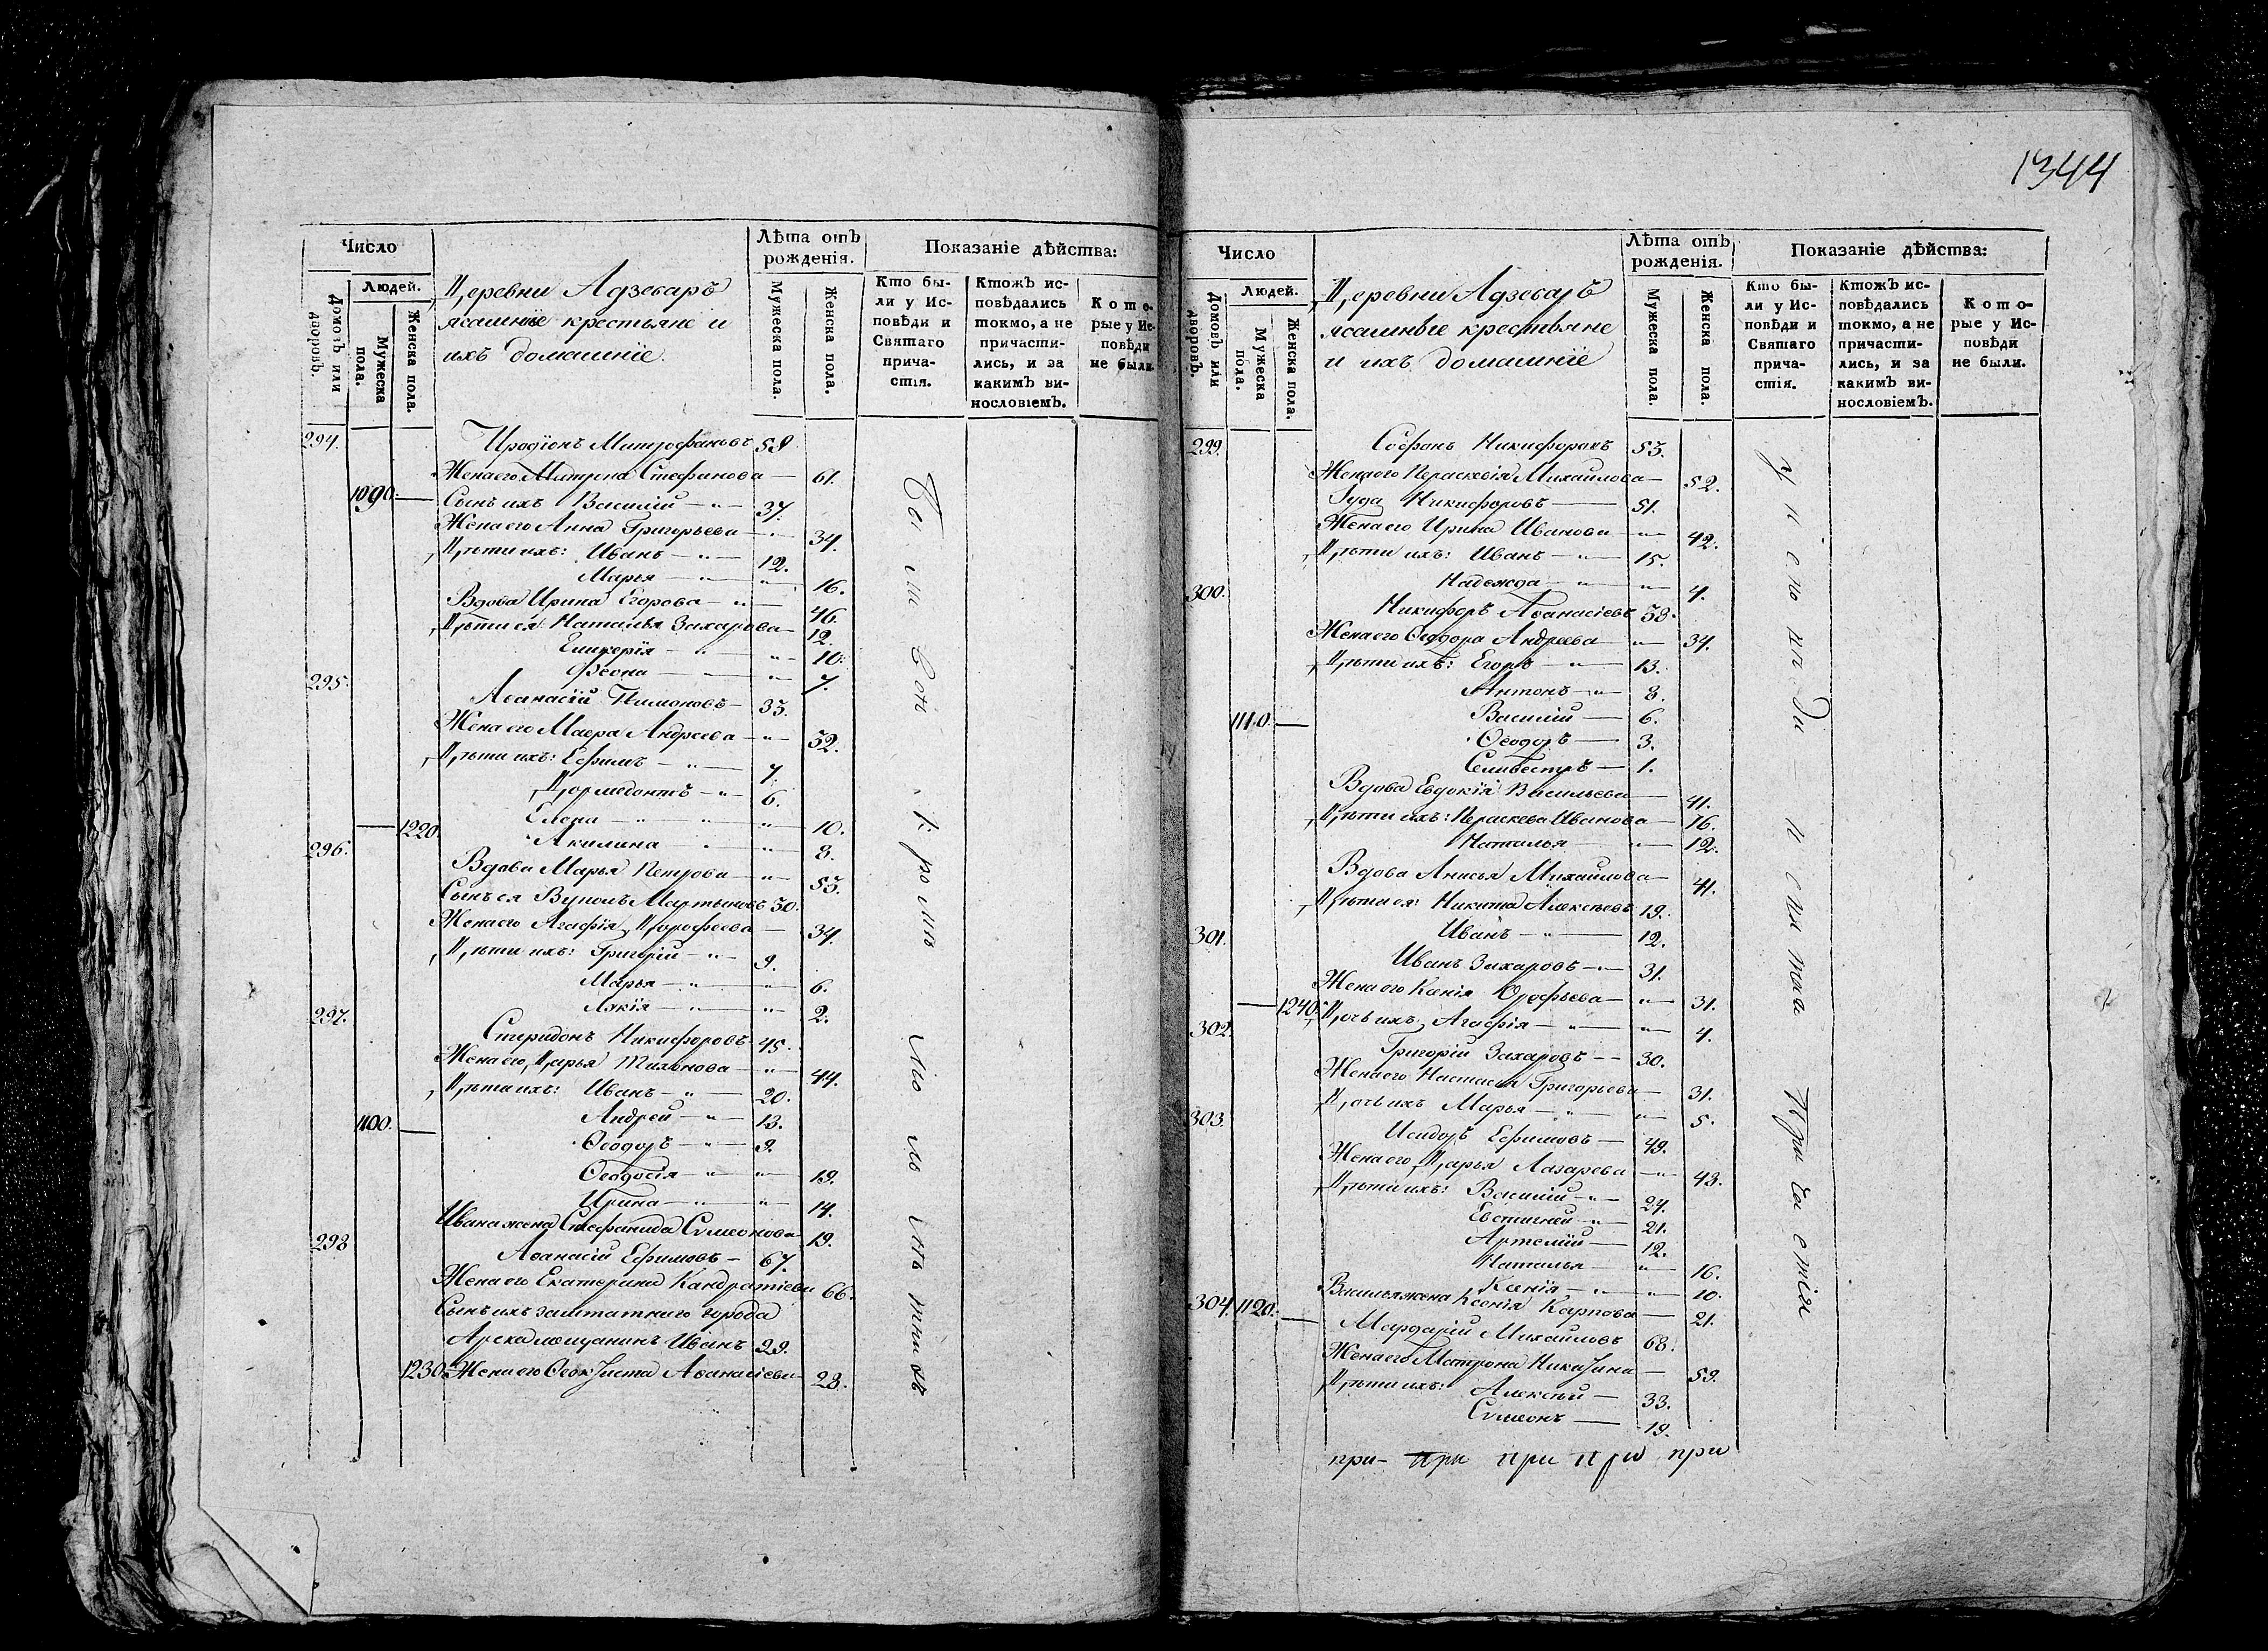 1344
Число
Людей.
Домовъ или дворовъ.
Мужеска пола.
Женска пола.
Деревни Адзеваръ
ясашные крестьяне и
ихъ домашніе
Лѣта отъ рожденія.
Мужеска пола.
Женска пола.
Показаніе дѣйства:
Кто были у Исповѣди и Святаго причастія.
Ктожъ исповѣдались токмо, а не причастились, и за какимъ винословіемъ.
Которые у Исповѣди не были.
294. Иродіонъ Митрофановъ 59
Жена его Матрена Стефанова — 61.
1090. — Сынъ ихъ Василій — " — 37.
Жена его Анна Григорьева — " — 34.
Дѣти ихъ: Иванъ — " — 12.
Марья — " — 16.
Вдова Ирина Егорова — " — 46.
Дѣти ея: Наталья Захарова — 12.
Гликерія — " — 10.
Ѳеона — " — 7.
295. Аѳанасій Пимоновъ — 35.
Жена его Мавра Андреева — " — 32.
Дѣти ихъ: Ефимъ — " — 7.
Дормедонтъ — " — 6.
Елена — " — 10.
— 1220. Акилина — " — 8.
296. Вдова Марья Петрова — " — 55.
Сынъ ея Вуколъ Мартыновъ 30.
Жена его Агафія Дорофеева — 34.
Дѣти ихъ: Григорій — " — 9.
Марья — " — 6.
Лукія — " — 2.
297. Спиридонъ Никифоровъ 45.
Жена его Дарья Тихонова — " — 44.
Дѣти ихъ: Иванъ — " — 20.
1100. — Андрей — " — 13.
Ѳеодоръ — " — 9.
Ѳеодосія — " — 19.
Ирина — " — 14.
Ивана жена Стефанида Симеонова 19.
298 Аѳанасій Ефимовъ — 67.
Жена его Екатерина Кандратіева 66.
Сынъ ихъ заштатнаго города
Арска мещанинъ Иванъ 29.
1230. Жена его Ѳеоктиста Аѳанасіева 28.
Число
Людей.
Домовъ или дворовъ.
Мужеска пола.
Женска пола.
Деревни Адзеваръ
ясашные крестьяне
и ихъ домашніе
Лѣта отъ рожденія.
Мужеска пола.
Женска пола.
Показаніе дѣйства:
Кто были у Исповѣди и Святаго причастія.
Ктожъ исповѣдались токмо, а не причастились, и за какимъ винословіемъ.
Которые у Исповѣди не были.
299. Софонъ Никифоровъ 53.
Жена его Параскевія Михайлова — 52.
Іуда Никифоровъ — 51.
Жена его Ирина Иванова — " — 42.
Дѣти ихъ: Иванъ — " — 15.
Надежда — " — 4.
300. Никифоръ Аѳанасіевъ 38.
Жена его Ѳеодора Андреева — " — 34.
Дѣти ихъ: Егоръ — " — 13.
Антонъ — " — 8.
1110. — Василій — 6.
Ѳеодоръ — 3.
Селивестръ — 1.
Вдова Евдокія Васильева — 41.
Дѣти ихъ: Параскева Иванова — 16.
Наталья — " — 12.
Вдова Анисья Михайлова — 41.
Дѣти ея: Никита Алексѣевъ 19.
Иванъ — " — 12.
301. Иванъ Захаровъ — " — 31.
Жена его Ксенія Ерофѣева — " — 31.
— 1240. Дочь ихъ Агафія — " — 4.
302. Григорій Захаровъ — 30.
Жена его Настасья Григорьева — 31.
Дочь ихъ Марья — " — 5.
303. Исидоръ Ефимовъ — 49.
Жена его Дарья Лазарева — " — 43.
Дѣти ихъ: Василій — " — 24.
Евстигней — " — 21.
Артемій — 12.
Наталья — " — 16.
Ксенія — " — 10.
Васильяжена Ксенія Карпова — 21.
304. 1120. — Мардарій Михайловъ 68.
Жена его Матрона Никитина — 59.
Дѣти ихъ: Алексѣй — 33.
Симеонъ — 19.
У исповѣди и святаго Причастія
при — при при при при